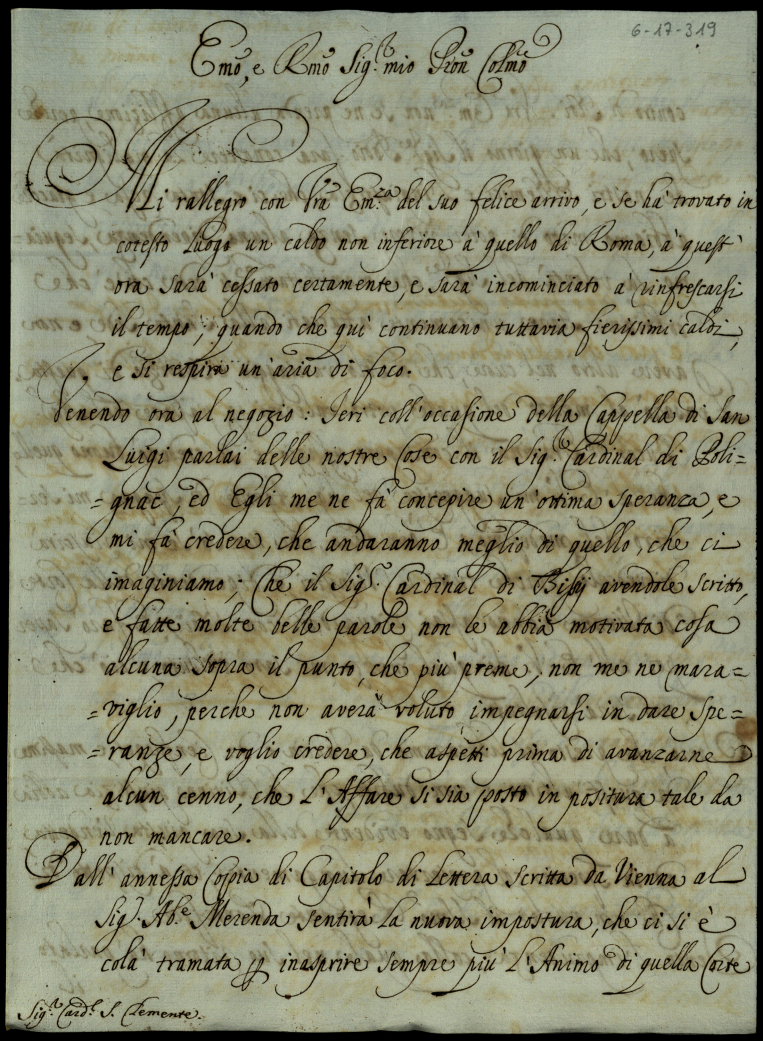 6-17-319
Emo, e Rmo Sigr. mio Pron Colmo
Mi rallegro con Vra Em.za del suo felice arrivo, e se hà trovato in
cotesto Luogo un caldo non inferiore à quello di Roma, à quest'
ora sarà cessato certamente, e sarà incominciato à rinfrescarsi
il tempo, quando che quì continuano tuttavia fierissimi caldi,
e si respira un'aria di foco.
Venendo ora al negozio: Ieri coll'occasione della Cappella di San
Luigi parlai delle nostre Cose con il Sigr. Cardinal di Poli=
=gnac, ed Egli me ne fà concepire un'ottima speranza, e
mi fà credere, che andaranno meglio di quello, che ci
imaginiamo; Che il Sigr. Cardinal di Bissij avendole scritto,
e fatte molte belle parole non le abbia motivata cosa
alcuna sopra il punto, che più preme, non me ne mara=
=viglio, perche non averà voluto impegnarsi in dare spe=
=ranze, e voglio credere, che aspetti prima di avanzarne
alcun cenno, che l'Affare si sia posto in positura tale da
non mancare.
Dall'annessa Coppia di Capitolo di Lettera scritta da Vienna al
Sigr. Ab.e Merenda sentirà la nuova impostura, che ci si è
colà tramata p inasprire sempre più l'Animo di quella Corte
Sigr. Card.l S. Clemente.